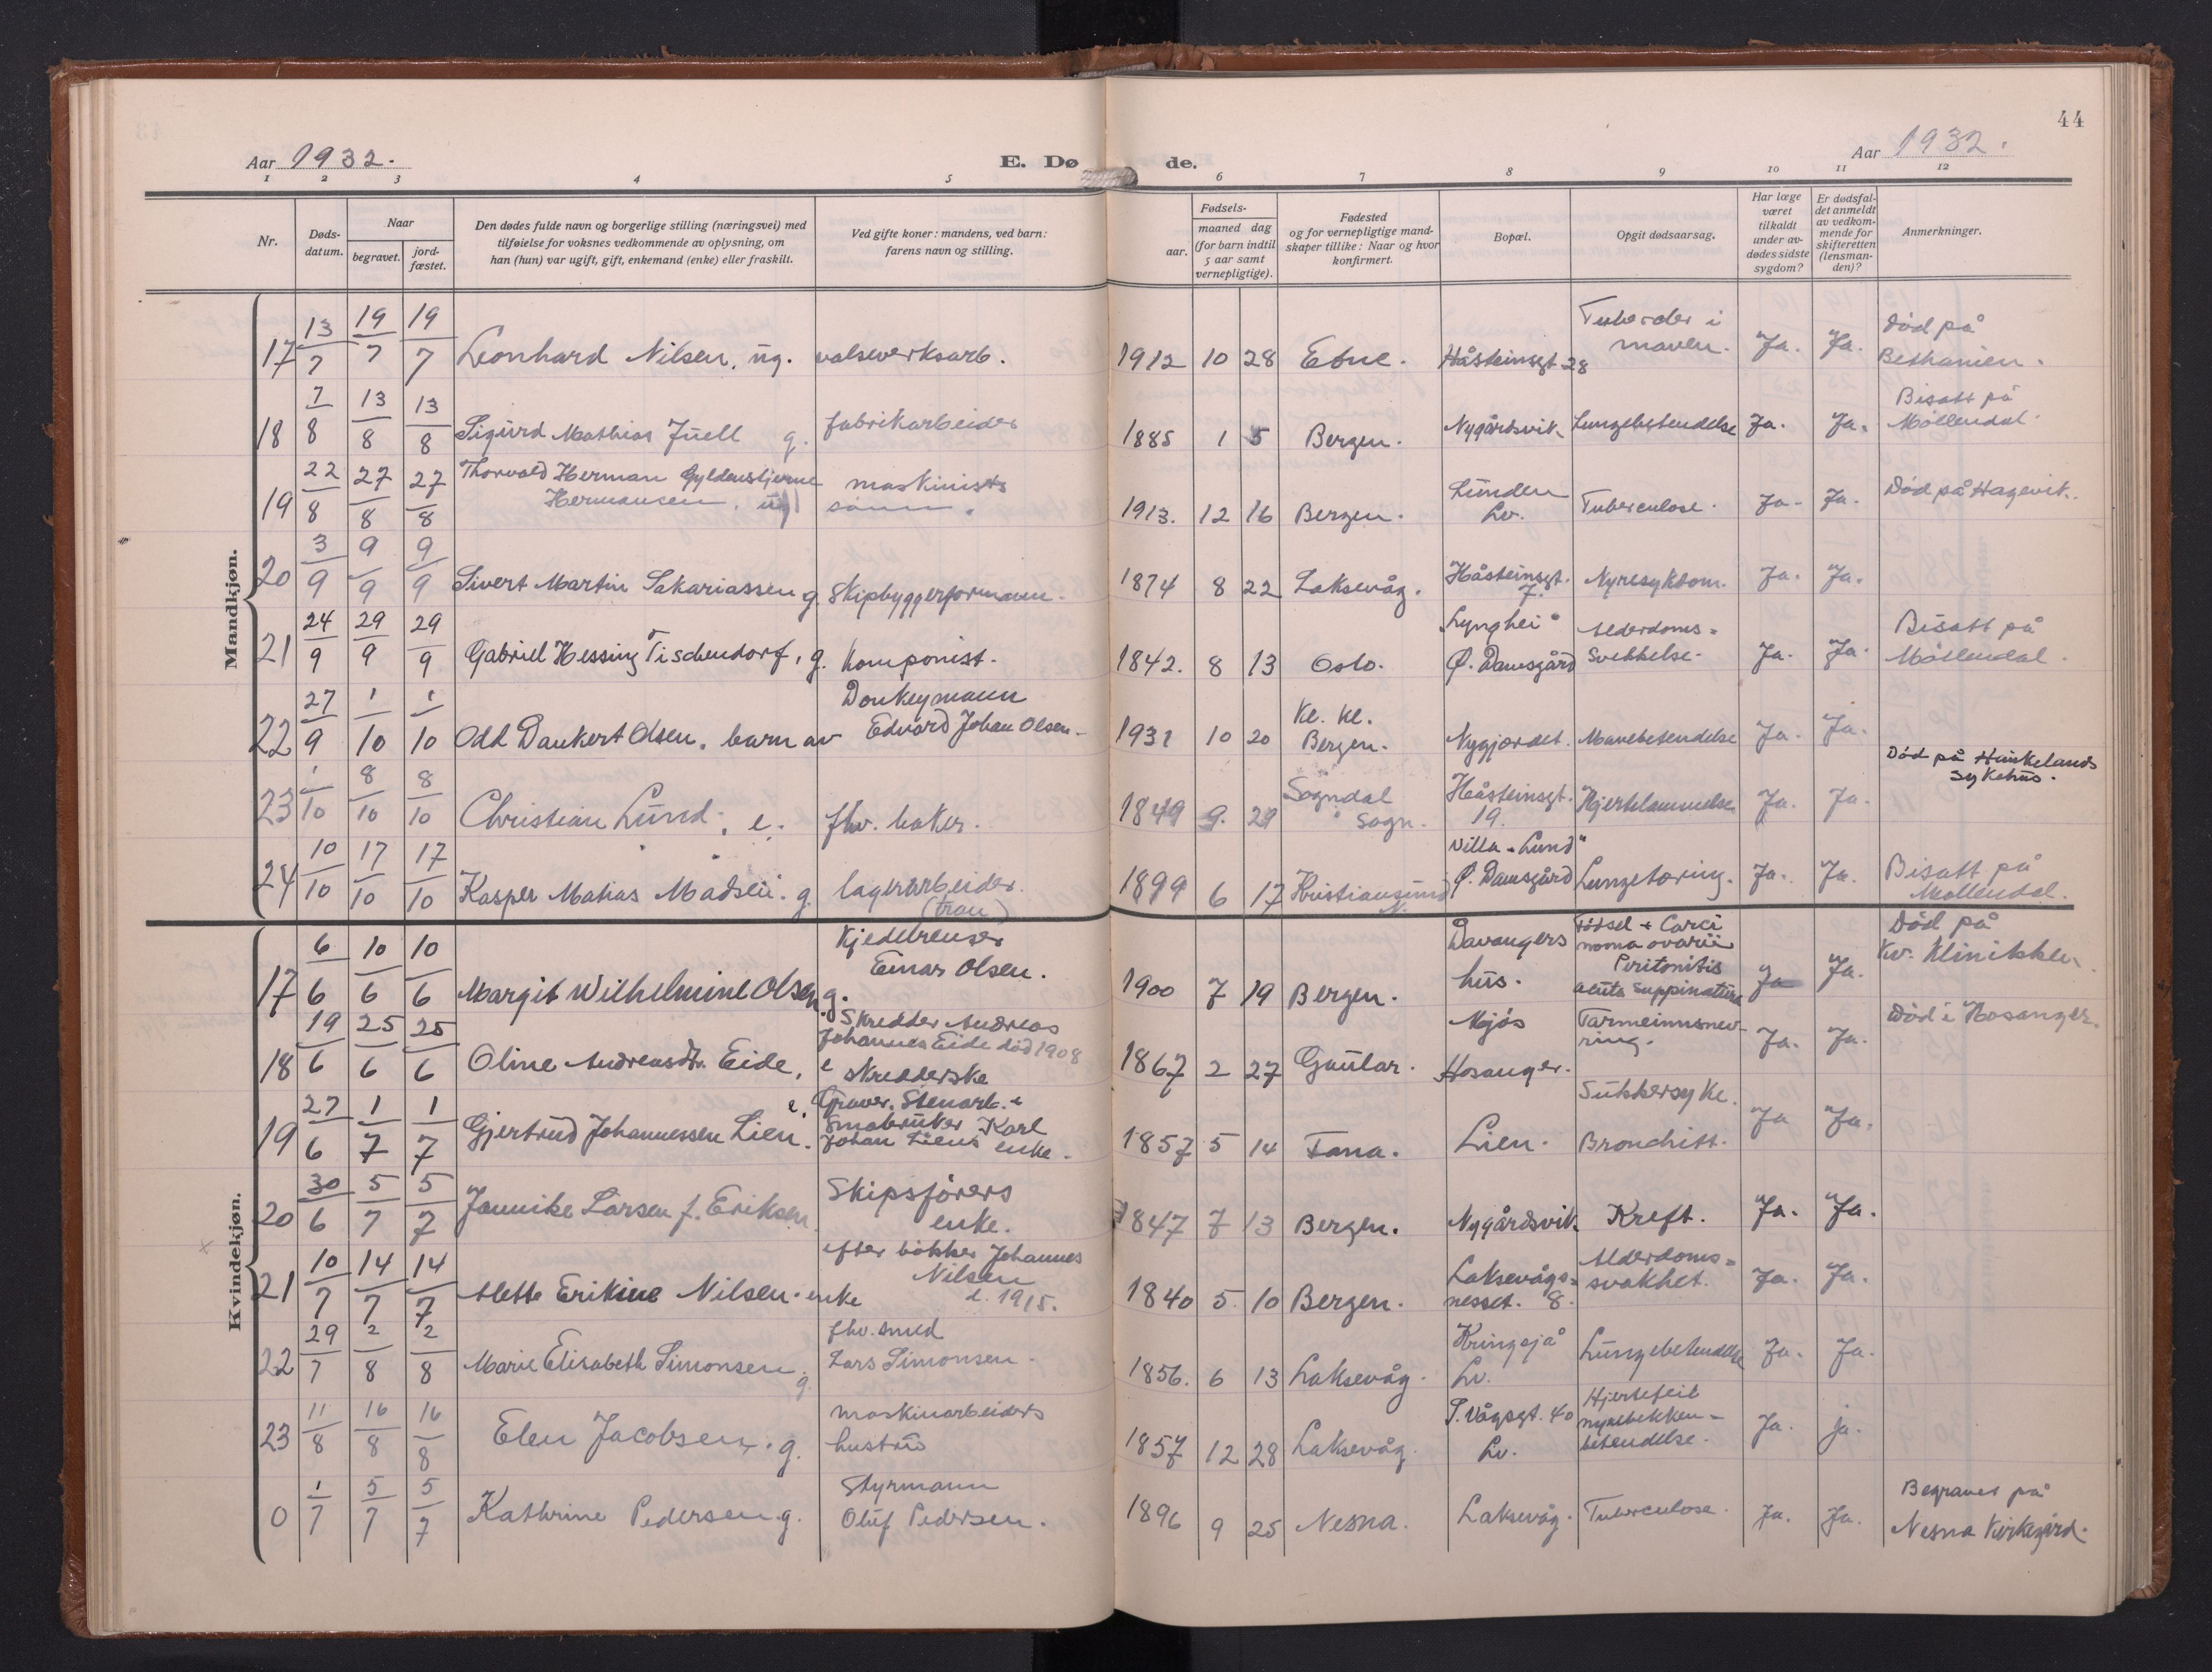 44
Aar 1932.
E. Dø de.
Aar 1932.
1 2 3 4 5 6 7 8 9 10 11 12
Nr.
Døds-
datum.
Naar
begravet.
jord-
fæstet.
Den dødes fulde navn og borgerlige stilling (næringsvei) med
tilføielse for voksnes vedkommende av oplysning, om
han (hun) var ugift, gift, enkemand (enke) eller fraskilt.
Ved gifte koner: mandens, ved barn:
farens navn og stilling.
Fødsels-
aar.
maaned dag
(for barn indtil
5 aar samt
vernepligtige).
Fødested
og for vernepligtige mand-
skaper tillike: Naar og hvor
konfirmert.
Bopæl.
Opgit dødsaarsag.
Har læge
været
tilkaldt
under av-
dødes sidste
sygdom?
Er dødsfal-
det anmeldt
av vedkom-
mende for
skifteretten
(lensman-
den)?
Anmerkninger.
Mandkjøn.
17 13/7 19/7 19/7 Leonhard Nilsen, ug. valseverksarb. 1912 10 28 Etne. Håsteinsgt. 28
Tuberkler i
maven. Ja. Ja.
Død på
Bethanien.
18 7/8 13/8 13/8 Sigurd Mathias Juell g. fabrikarbeider 1885 1 5 Bergen. Nygårdsvik Lungebetendelse Ja. Ja.
Bisatt på
Møllendal.
19 22/8 27/8 27/8 Thorvald Herman Gyldenstjerne
Hermansen, ug
maskinists
sønn. 1913. 12 16 Bergen.
Lunden
Lv. Tuberculose. Ja. Ja. Død på Hagevik.
20 3/9 9/9 9/9 Sivert Martin Sakariassen g. Skipbyggerformann. 1874 8 22 Laksevåg.
Håsteinsgt.
7. Nyresykdom. Ja. Ja.
21 24/9 29/9 29/9 Gabriel Hessing Tischendorf, g. Komponist. 1842. 8 13 Oslo.
"Lynghei"
Ø. Damsgård
Alderdoms-
Svekkelse. Ja. Ja.
Bisatt på
Møllendal.
22 27/9 1/10 1/10 Odd Dankert Olsen, barn av
Donkeymann
Edvard Johan Olsen. 1931 10 20
Kv. Kl.
Bergen. Nygjordet. Mavebetendelse Ja. Ja.
23 1/10 8/10 8/10 Christian Lund, e. fhv. baker. 1849 9. 29
Sogndal
i Sogn.
Håsteinsgt.
19. Hjertelammelse Ja. Ja.
Død på Haukelands
Sykehus.
24 10/10 17/10 17/10 Kasper Matias Madsen. g. lagerarbeider.
(tran) 1899 6 17 Kristiansund
N.
Villa "Lund"
Ø. Damsgård Lungetæring. Ja. Ja.
Bisatt på
Møllendal.
Kvindekjøn.
17 6/6 10/6 10/6 Margit Wilhelmine Olsen g.
Kjedelrenser
Einar Olsen. 1900 7 19 Bergen.
Davangers
hus.
Fødsel + Carci
noma ovarii
Peritonitis
acuta suppinativa Ja Ja.
Død på
Kv. Klinikken.
18 19/6 25/6 25/6 Oline Andreasdtr. Eide, e
Skredder Andreas
Johannes Eide død 1908
skredderske 1867 2 27 Gaular.
Mjøs
Hosanger.
Tarmeinnsnev-
ring. Ja. Ja. Død i Hosanger.
19 27/6 1/7 1/7 Gjertrud Johannessen Lien. e.
Graver, Stenarb. &
Småbruker Karl
Johan Liens enke. 1857 5 14 Fana. Lien.
Sukkersyke.
Bronchitt. Ja Ja.
20 30/6 5/7 5/7 Jannike Larsen f. Eriksen.
Skipsførers
enke. 1847 7 13 Bergen. Nygårdsvik Kreft. Ja. Ja.
21 10/7 14/7 14/7 Mette Erikine Nilsen. enke
efter bøkker Johannes
Nilsen
d. 1915. 1840 5. 10 Bergen.
Laksevågs-
nesset. 8.
Alderdoms-
svakhet. Ja. Ja.
22 29/7 2/8 2/8 Marie Elisabeth Simonsen g.
fhv. smed
Lars Simonsen. 1856. 6 13 Laksevåg.
Kringsjå
Lv. Lungebetendelse Ja. Ja.
23 11/8 16/8 16/8 Elen Jacobsen. g.
maskinarbeiders
hustru 1857 12 28 Laksevåg.
P. Vågsgt. 40
Lv.
Hjertefeil
nyrebekken-
betendelse. Ja. ja.
0 1/7 5/7 5/7 Kathrine Pedersen. g.
Styrmann
Oluf Pedersen. 1896 9 25 Nesna. Laksevåg. Tuberculose. Ja. Ja.
Begravet på
Nesna Kirkegård.